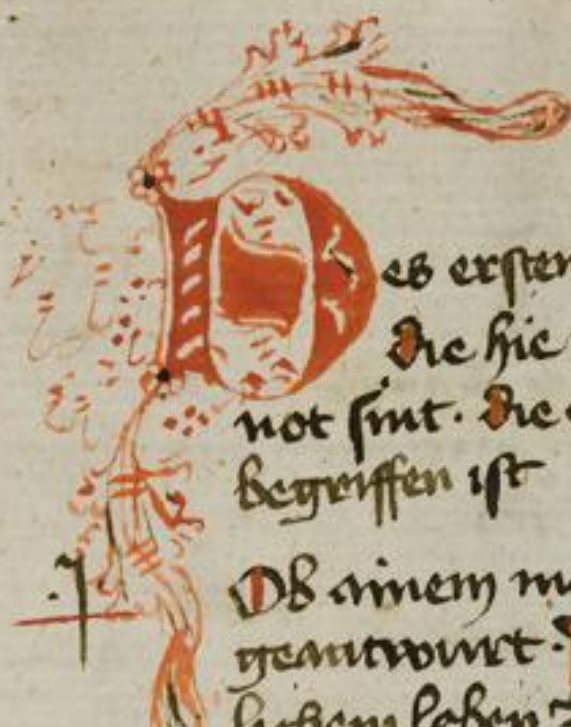 Des ersten
die hie
not sint. die
begriffen ist
.j.
Ob ainem
geantwurt.
lichem leben